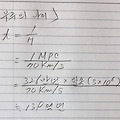 우주의 나이
t = 1/H
= 1 Mpc / 70 km/s
= 326만 × 광속 (3×10⁵) / 70 km/s
≒ 139억년